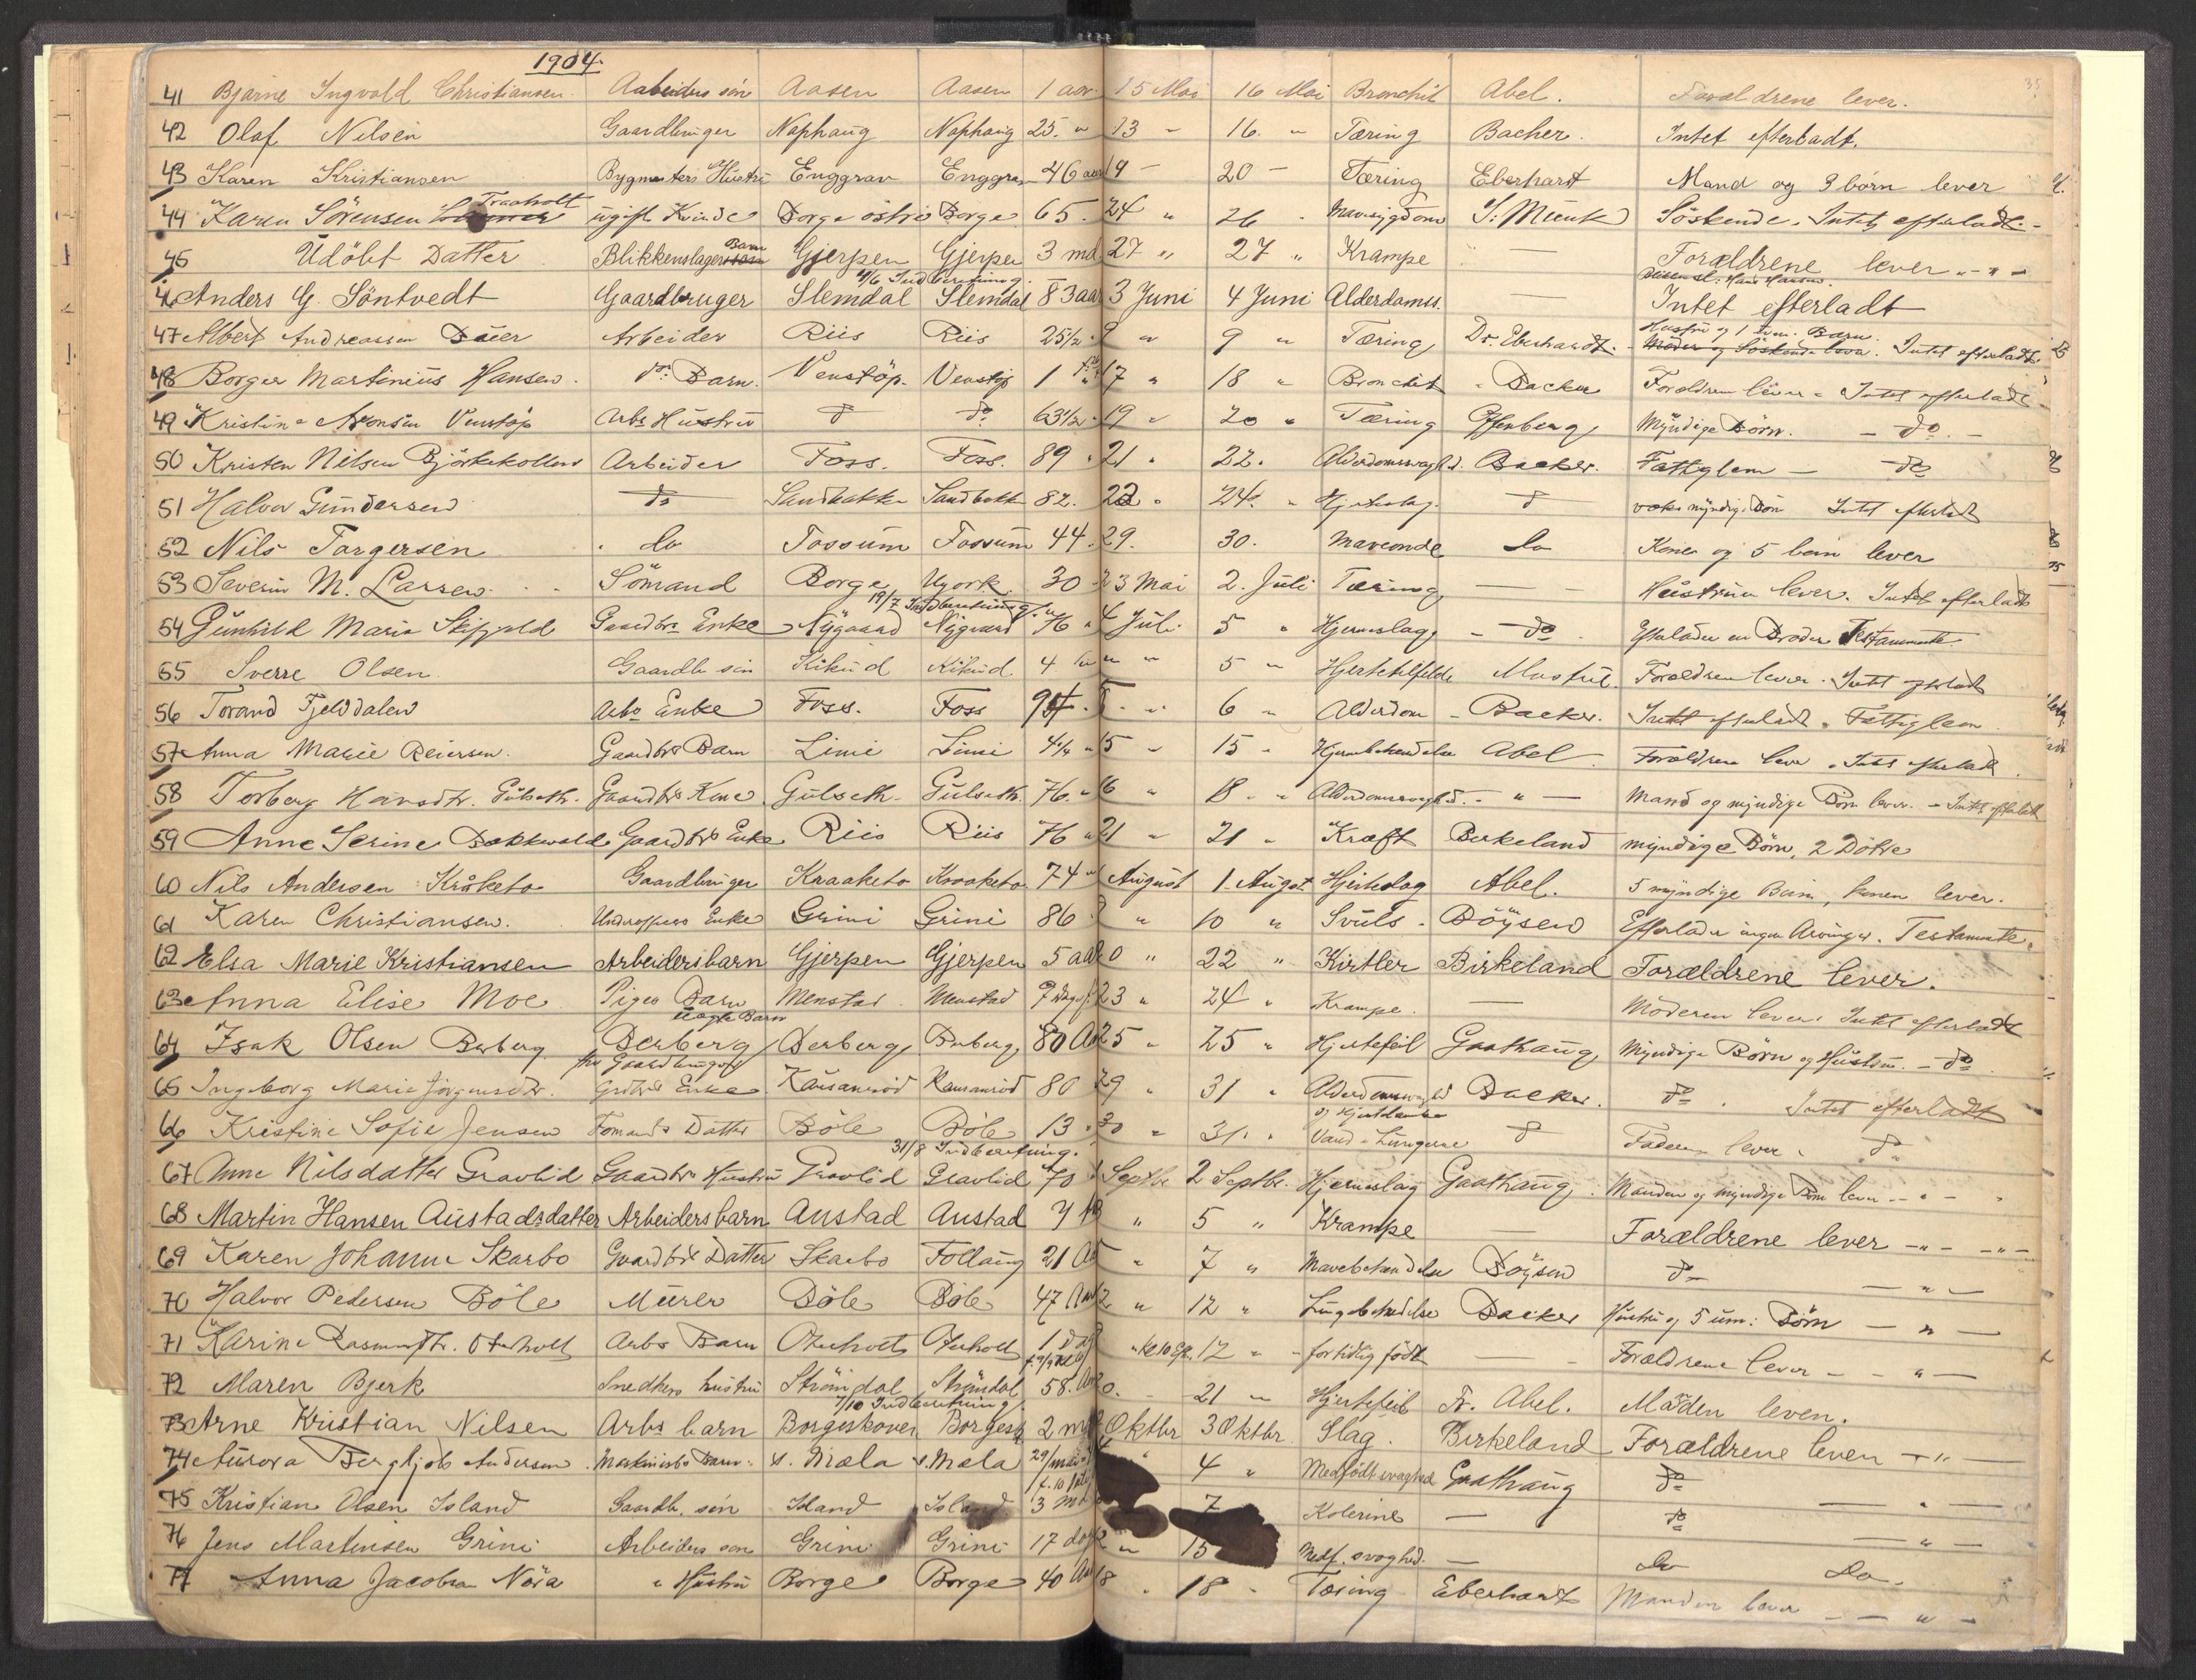 1904.
41 Bjarne Ingvald Christiansen Arbeiders sön Aasen Aasen 1 aar 15 Mai 16 Mai Bronchit Abel. Forældrene lever.
42 Olaf Nilsen Gaardbruger Naphaug Naphaug 25 " 13 - 16 " Tæring Backer. Intet efterladt.
43 Karen Kristiansen Bygmesters Hustru Enggrav Enggrav 46 aar 19 - 20 - Tæring Eberhart Mand og 9 börn lever
44 Karen Sörensen Traaholt ugift Kvinde Borge östre Borge 65 24 " 26 Mavesygdom S. Munk Söskende. Intet efterladt
45 Udöbt Datter Blikkenslagers Barn Gjerpen Gjerpen 3 md. 27 " 27 " Krampe — Forældrene lever - " -
4/6 Indberetning. Hans Hansen.
46 Anders G. Söntvedt Gaardbruger Slemdal Slemdal 83 aar 3 Juni 4 Juni Alderdomss. — Intet efterladt
47 Albert Andreassen Arbeider Riis Riis 25 1/2 " 9 " Tæring Dr. Eberhardt. Hustru og 1 um. Barn. Moder og Söskende lever. Intet efterladt
48 Borger Martinius Hansen do Barn. Venstöp. Venstöp 1 17 " 18 " Bronchit Backer Forældrene lever - Intet efterladt
49 Kristine Aronsen Venstöp Arbs Hustru do do 63 1/2 19 " 20 " Tæring Offenberg Myndige Börn. - do -
50 Kristen Nilsen Björkekollen Arbeider Foss. Foss. 89 21 " 22. Alderdomssvaghd. Backer. Fattiglem - do
51 Halvor Gundersen do Sandbakke Sandbakk 82. 22 " 24. " Hjerteslag. do voksne myndige Börn Intet efterladt
52 Nils Torgersen do Fossum Fossum 44. 29. 30. Maveonde do Kone og 5 börn lever
53 Severin M. Larsen Sömand Borge Nyork 30 23 Mai 2. Juli Tæring — Hustruen lever. Intet efterladt
19/7 Indberetning.
54 Gunhild Maria Skifjeld Gaardbrs Enke Nygaard Nygaard 76 " 4 Juli 5 " Hjerneslag - do Efterlader en Broder Testamente
55 Sverre Olsen Gaardb. sön Kikud Kikud 4 " " 5 " Hjertelfelde Forældrene lever. Intet efterladt
56 Torand Fjelddalen Arbs Enke Foss. Foss 5 " 6 " Alderdom - Backer. Intet efterladt. Fattiglem
57 Anna Marie Reiersen. Gaardbrs Barn Limi Limi 4 1/2 " 15 " 15 " Hjernebetændelse Abel Forældrene lever. Intet efterladt
58 Torberg Hansdtr. Gulseth. Gaardbrs Kone Gulseth. Gulseth. 76. " 16 " 18 " Alderdomssvaghd. - " - Mand og myndige Börn lever. - Intet efterladt
59 Anne Serine Bakkevold Gaardbrs Enke Riis Riis 76 " 21 " 21 " Kræft Birkeland myndige Börn, 2 Dötre
60 Nils Andersen Kråketo Gaardbruger Kraaketo Kraaketo 74 " August 1. August Hjerteslag Abel. 5 myndige Barn, konen lever.
61 Karen Christiansen. Enke Grini Grini 86 " 10 " Svuls - Böysen Efterlader ingen Arvinger. Testamente.
62 Elsa Marie Kristiansen Arbeidersbarn Gjerpen Gjerpen 5 aar 20 " 22 " Kirtler Birkeland Forældrene lever.
63 Anna Elise Moe Piges Barn uægte Barn Menstad Menstad 9 dage 23 " 24 " Krampe. — Moderen lever. Intet efterladt
64 Isak Olsen Berberg Berberg Berberg Berberg 80 Aar 25 " 25 " Hjertefeil Gaathaug Myndige Börn og Hustru. - do
fhv Gaardbruger
65 Ingeborg Marie Jörgensdtr. Grdbrs Enke Kausanröd Kausanröd 80 29 " 31 " Alderdomssvaghed Backer. do. Intet efterladt
66 Kristine Sofie Jensen Fomands Datter Böle Böle 13 30 " 31. " Vand i Lungerne do Faderen lever. do
31/8 Indberetning.
67 Anne Nilsdatter Gravlid Gaardbrs Hustru Gravlid Gravlid 70 1 Septbr 2 Septbr. Hjerneslag Gaathaug. Manden og myndige Börn lever - " -
68 Martin Hansen Austadsdatter Arbeidersbarn Austad Austad 7 " 5 " Krampe — Forældrene lever - " - - " -
69 Karen Johanne Skarbo Gaardbrs Datter Skarbo Follaug 21 Aar 5 " 7 " Mavebetændelse Böysen do - " -
70 Halvor Pedersen Böle Murer Böle Böle 47 Aar 12 " 12 " Lungebetændelse Backer Hustru og 5 um: Börn - " -
71 Karine Rasmusdtr. Oterholt Arbs Barn Oterholt Oterholt 1 dag " Kl 10 Ef. 12 " - for tidlig födt — Forældrene lever - " -
72 Maren Bjerk Snedkers hustru Strömdal Strömdal 58. Aar 20. 21 " Hjertefeil Fr. Abel. Manden leven.
1/10 Indberetning.
73 Arne Kristian Nilsen Arbs barn Borgeskoven Borgesk 2 md. 2 Oktbr 3 Oktbr Slag. Birkeland Forældrene leven - " -
74 Aurora Bergljot Andersen Maskinists Barn n. Mæla n. Mæla 4 " Medfödt svaghed Gaathaug do
75 Kristian Olsen Island Gaardb. sön Island Island 3 md 7 Kolerine — do - " -
76 Jens Martinsen Grini Arbeiders sön Grini Grini 17 dage 12 " 15 Medf. svaghed. — do - " -
77 Anna Jacobsen Nöra " Hustru Borge Borge 40 Aar 18 18 " Tæring Eberhardt Manden lever - " - do do.